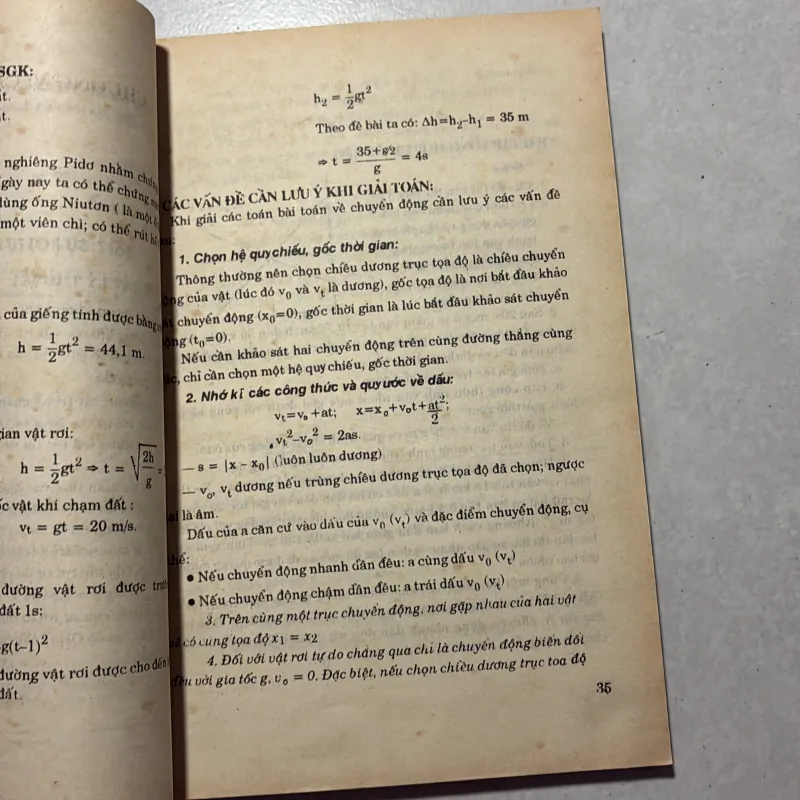 SGK:
ất.
ất.
nghiêng Pidơ nhằm chứng
gày nay ta có thể chứng
dùng ống Niutơn ( là một
một viên chì; có thể rút
của giếng tính được bằng
h = 1/2 gt² = 44,1 m.
gian vật rơi:
h = 1/2 gt² ⇒ t = √(2h/g) =
ốc vật khi chạm đất :
vt = gt = 20 m/s.
đường vật rơi được
đất 1s:
g(t–1)²
đường vật rơi được cho đến
đất.
h₂ = 1/2 gt²
Theo đề bài ta có: Δh=h₂–h₁ = 35 m
⇒ t = (35+g/2)/g = 4s
CÁC VẤN ĐỀ CẦN LƯU Ý KHI GIẢI TOÁN:
Khi giải các toán bài toán về chuyển động cần lưu ý các vấn đề
1. Chọn hệ quy chiếu, gốc thời gian:
Thông thường nên chọn chiều dương trục tọa độ là chiều chuyển
ộng của vật (lúc đó v₀ và vt là dương), gốc tọa độ là nơi bắt đầu khảo
át chuyển động (x₀=0), gốc thời gian là lúc bắt đầu khảo sát chuyển
ộng (t₀=0).
Nếu cần khảo sát hai chuyển động trên cùng đường thẳng cùng
c, chỉ cần chọn một hệ quy chiếu, gốc thời gian.
2. Nhớ kĩ các công thức và quy ước về dấu:
vt=v₀ +at; x=x₀+v₀t+at²/2;
vt²–v₀² = 2as.
— s = |x – x₀| (luôn luôn dương)
— v₀, vt dương nếu trùng chiều dương trục tọa độ đã chọn; ngược
ại là âm.
Dấu của a căn cứ vào dấu của v₀ (vt) và đặc điểm chuyển động, cụ
hể:
● Nếu chuyển động nhanh dần đều: a cùng dấu v₀ (vt)
● Nếu chuyển động chậm dần đều: a trái dấu v₀ (vt)
3. Trên cùng một trục chuyển động, nơi gặp nhau của hai vật
sẽ có cùng tọa độ x₁ = x₂
4. Đối với vật rơi tự do chẳng qua chỉ là chuyển động biến đổi
đều với gia tốc g, v₀ = 0. Đặc biệt, nếu chọn chiều dương trục toạ độ
35